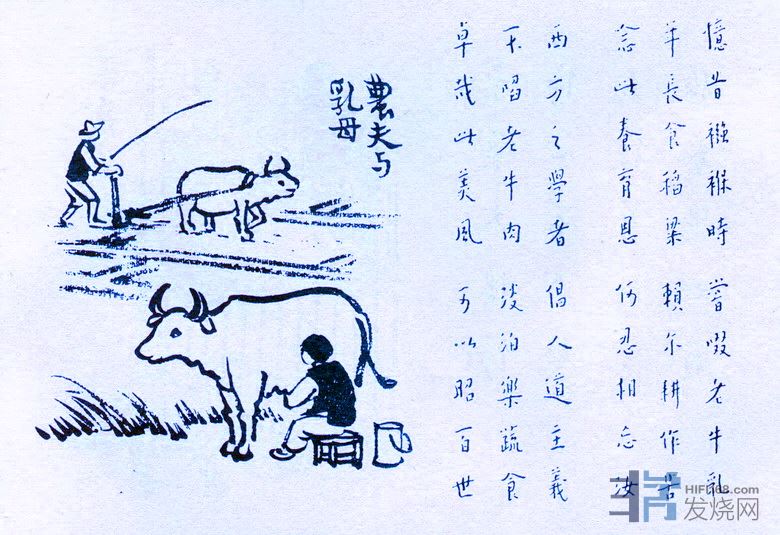 農夫与
乳母
憶昔襁褓時 嘗啜老牛乳
年長食稻粱 賴尔耕作苦
念此養育恩 何忍相忘汝
西方之學者 倡人道主義
不啗老牛肉 淡泊樂蔬食
卓哉此美風 可以昭百世
HIFI168.com
发烧网